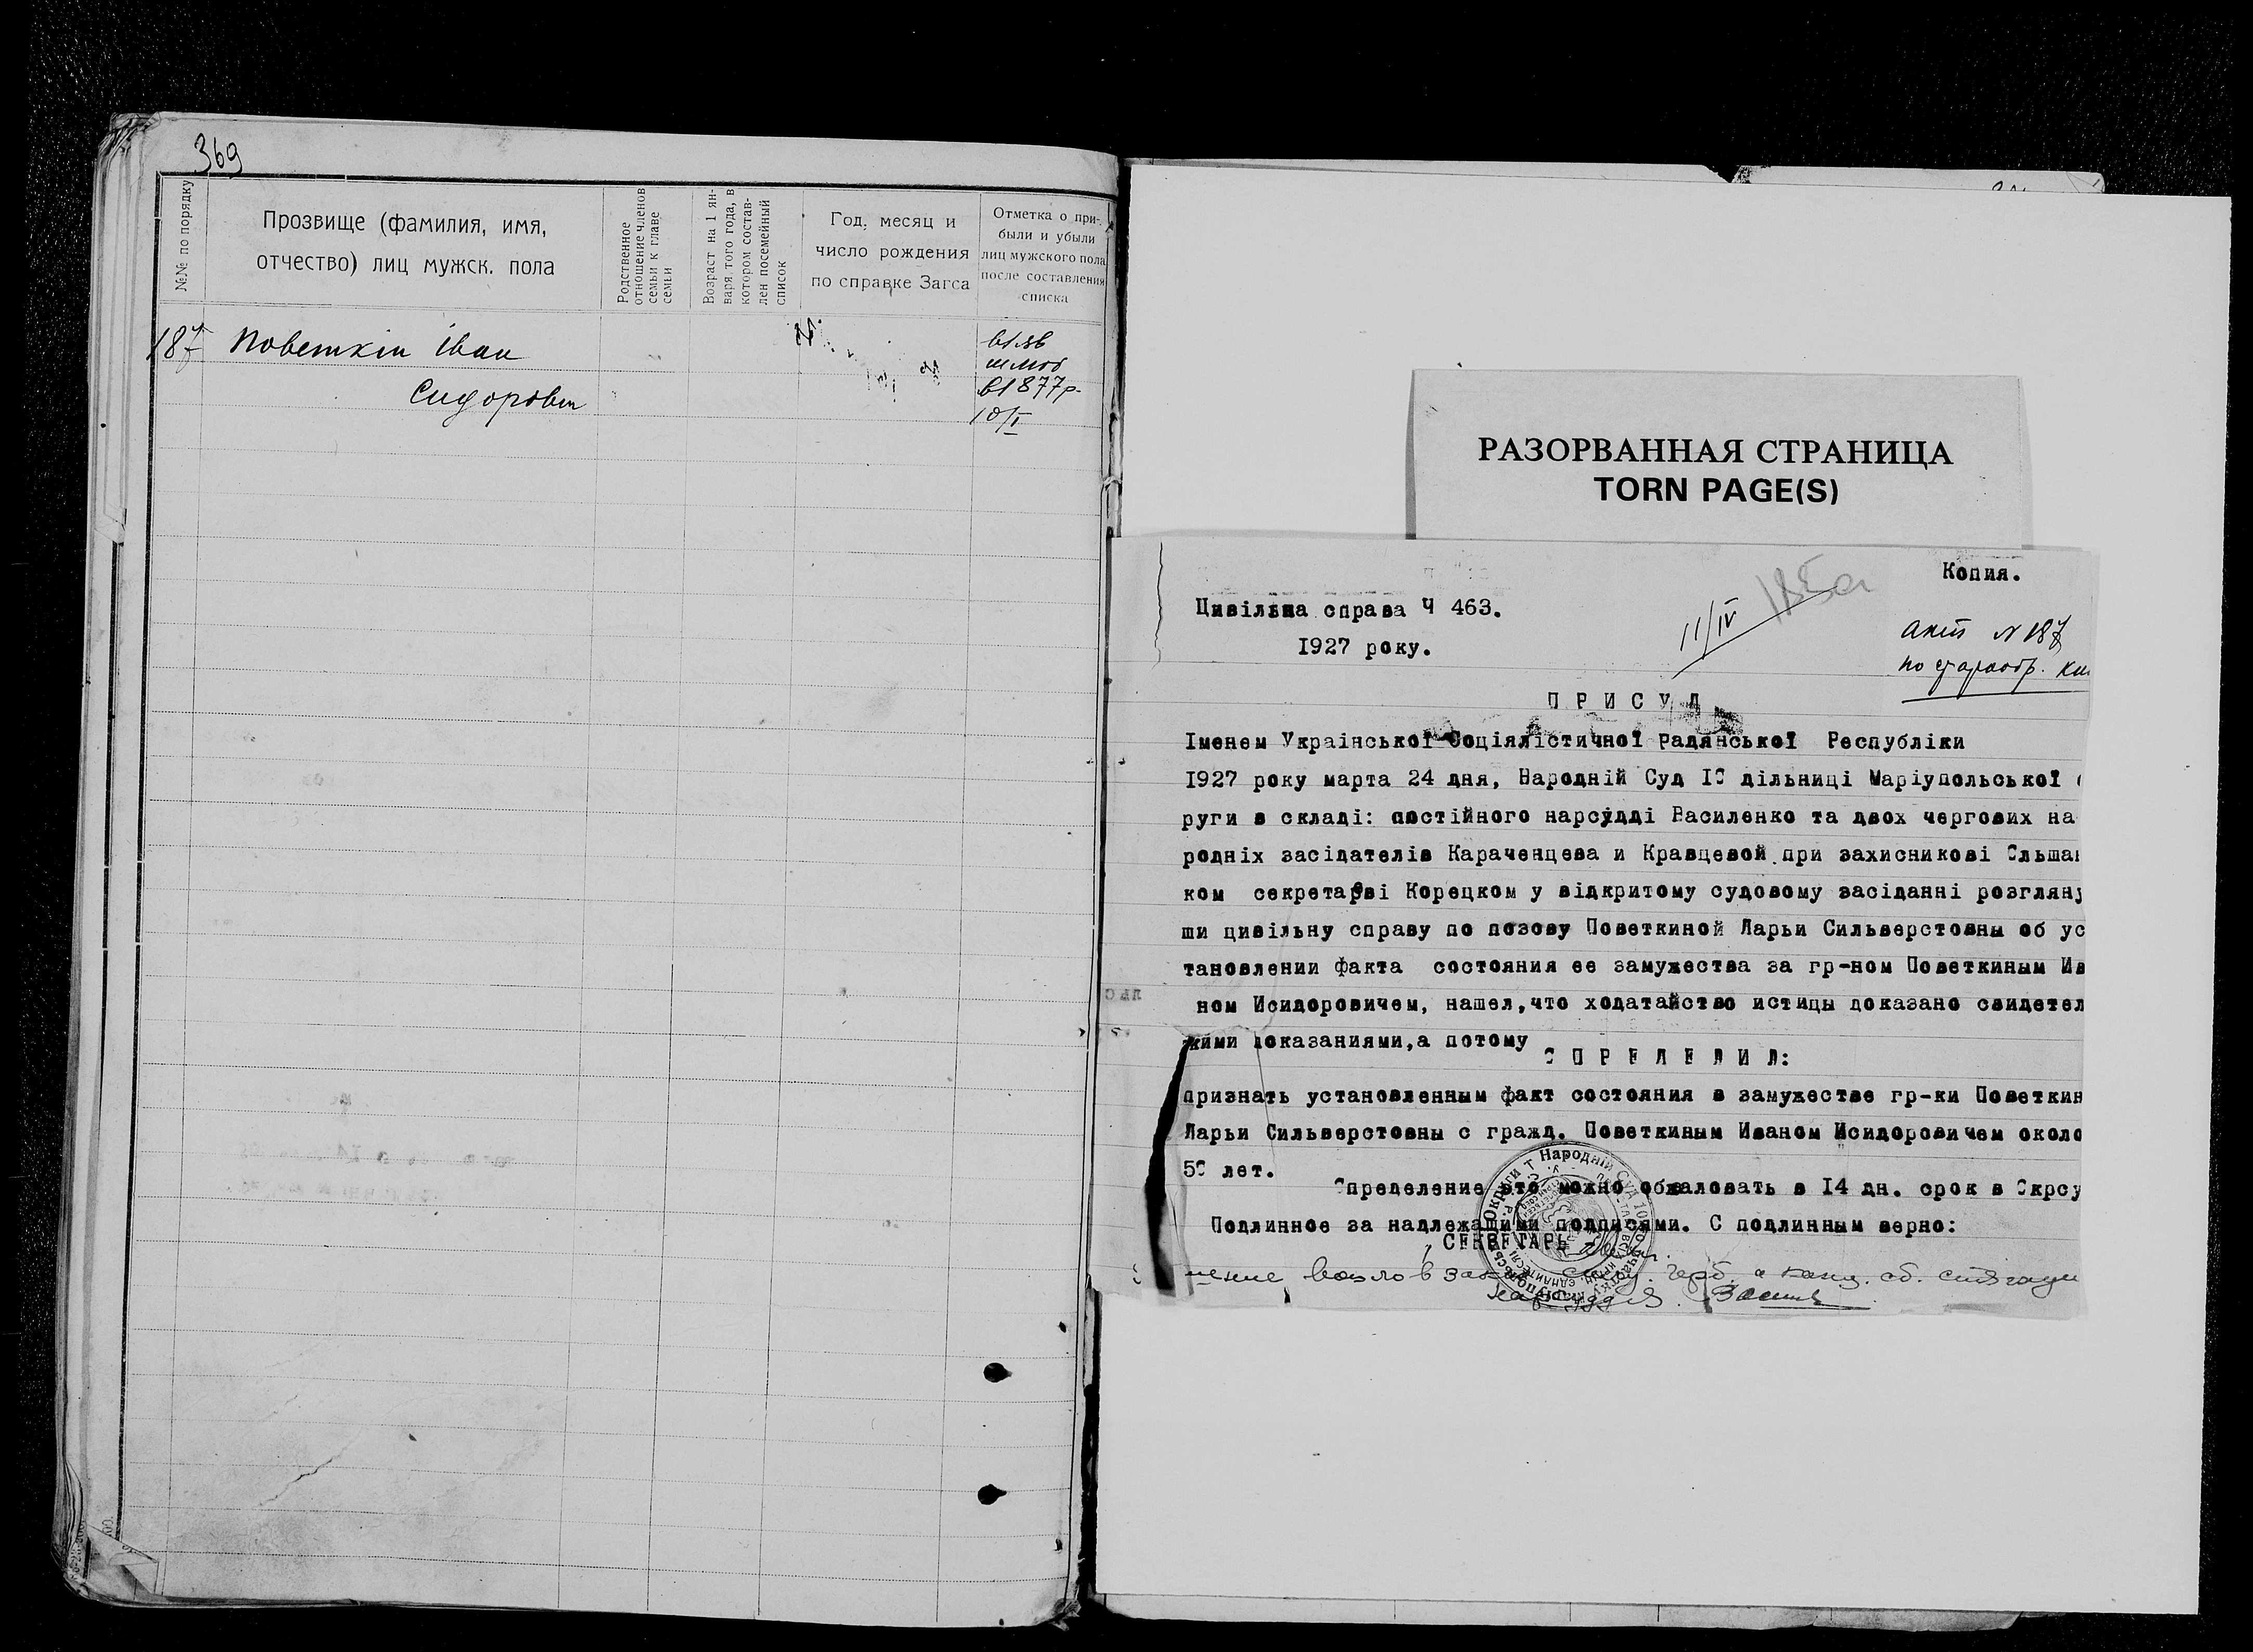 369
№№ по порядку
Прозвище (фамилия, имя,
отчество) лиц мужск. пола
Родственное
отношение членов
семьи к главе
семьи
Возраст на 1 ян-
варя того года, в
котором состав-
лен посемейный
список
Год, месяц и
число рождения
по справке Загса
Отметка о при-
были и убыли
лиц мужского пола
после составления
списка
187 Поветкін Іван
Сидорович
в шлюб
в 1877 р.
10/I
РАЗОРВАННАЯ СТРАНИЦА
TORN PAGE(S)
Копия.
185а
11/IV
Цивільна справа Ч 463.
1927 року.
Акт N 187
по старообр. кн
ПРИСУД
Іменем Української Соціялістичної Радянської Республіки
1927 року марта 24 дня, Народній Суд 10 дільниці Маріупольської
руги в складі: постійного нарсудді Василенко та двох чергових на
родніх засідателів Караченцева и Кравцевой при захисникові Ольшан
ком секретарві Корецком у відкритому судовому засіданні розгляну
ши цивільну справу по позову Поветкиной Дарьи Сильверстовны об ус
тановлении факта состояния ее замужества за гр-ном Поветкиным Ив
ном Исидоровичем, нашел,что ходатайство истицы доказано свидетел
кими показаниями,а потому
ОПРЕДЕЛИЛ:
признать установленным факт состояния в замужестве гр-ки Поветкин
Дарьи Сильверстовны с гражд. Поветкиным Иваном Исидоровичем около
50 лет.
Определение это можно обжаловать в 14 дн. срок в Окрсу
Подлинное за надлежащими подписями. С подлинным верно:
СЕКРЕТАРЬ
вошло в зак. силу. герб. и канц. сб.
Нарсуддя
Народній Суд 10